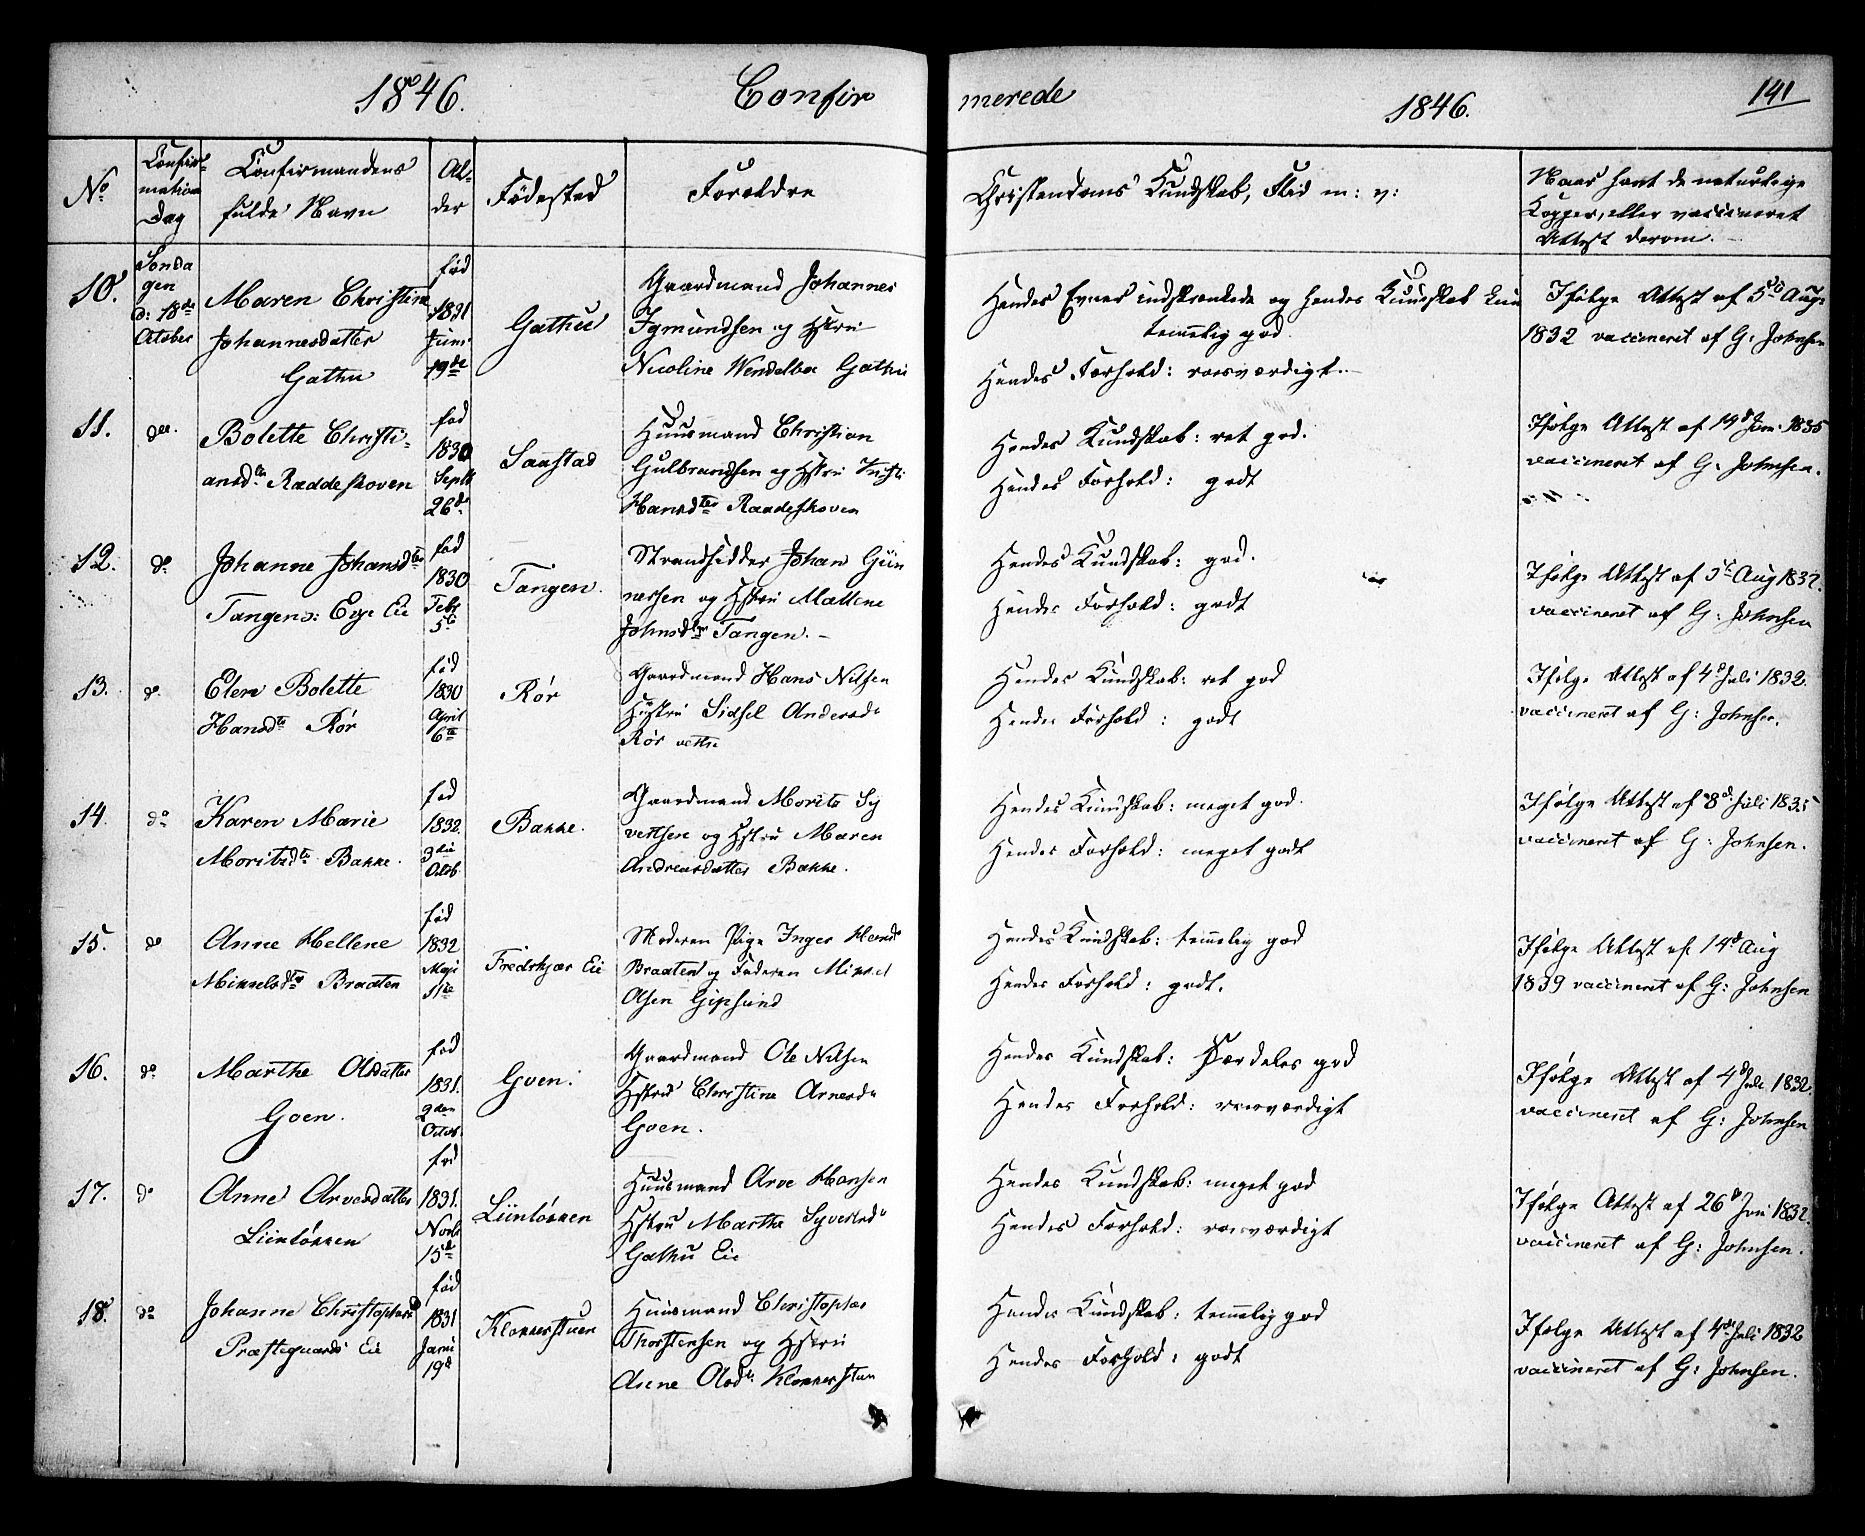 1846. Confir
merede 1846. 141
No
Confir-
mation
Dag
Confirmandens
fulde Navn
Al-
der
Födested
Forældre
Christendoms Kundskab, Flid m: v:
Naar havt de naturlige
Kopper, eller vaccineret
Attest derom.
10.
Sonda
gen
d: 18de
October
Maren Christine
Johannesdatter
Gathu
fød
1831
Juni
19de
Gathu
Gaardmand Johannes
Igmundsen og Hstru
Nicoline Wendelboe Gathu
Hendes Evner indskrænkede og hendes Kundskab kun
temelig god.
Hendes Forhold: roesværdigt.
Ifölge Attest af 5te Aug
1832 vaccineret af G: Johnsen
11.
do.
Bolette Christi-
ansdtr Raddeskoven
fød
1830
Septb
26de
Saastad
Huusmand Christian
Gulbrandsen og Hstru
Hansdtr Raadeskoven
Hendes Kundskab: ret god.
Hendes Forhold: godt
Ifølge Attest af 14d Jun. 1835
vaccineret af G: Johnsen.
12.
do.
Johanne Johansdtr
Tangens: Eye Eie
fød
1830
Febr
5te
Tangen.
Strandsidder Johan Gun
nersen og Hstru Mallene
Johnsdtr Tangen.
Hendes Kundskab: god.
Hendes Forhold: godt
Ifølge Attest af 5te Aug 1832.
vaccineret af G: Johnsen
13.
do.
Elen Bolette
Hansdtr Rør
fød
1830
April
6te
Rør
Gaardmand Hans Nilsen
Hustru Sidsel Andersd.
Rør vestre
Hendes Kundskab: ret god
Hendes Forhold: godt
Ifølge Attest af 4d Juli 1832.
vaccineret af G: Johnsen.
14.
do
Karen Marie
Moritsdtr Bakke.
fød
1832.
3die
Octb.
Bakke.
Gaardmand Morits Sy
vertsen og Hstru Maren
Andreasdatter Bakke.
Hendes Kundskab: meget god.
Hendes Forhold: meget godt
Ifølge Attest af 8d. Juli 1835
vaccineret af G: Johnsen.
15.
do
Anne Hellene
Mikkelsdtr Braaten
fød
1832
Maji
Fredskjær Eie
Moderen Pige Inger Hansd
Braaten og Faderen Mikkel
Olsen Gipsund
Hendes Kundskab: temelig god
Hendes Forhold: godt.
Ifølge Attest af 14d Aug
1839 vaccineret af G: Johnsen
16.
do.
Marthe Olsdatter
Goen.
fød
1831.
2den
Octob.
Goen.
Gaardmand Ole Nilsen
Hstru Christine Arnesd.
Goen.
Hendes Kundskab: Særdeles god
Hendes Forhold: roesværdigt
Ifølge Attest af 4d Juli 1832.
vaccineret af G: Johnsen
17.
do
Anne Arvesdatter
Liinløkken
fød
1831.
Novb
15de
Liinløkken
Huusmand Arve Hansen
Hstru Marthe Syvertsd.
Gathu Eie
Hendes Kundskab: meget god
Hendes Forhold: roesværdigt
Ifølge Attest af 26de Juni 1832.
vaccineret af G: Johnsen.
18.
do
Johanne Christophersd
Præstegaards Eie
fød
1831
Janu
19d
Klokkerstuen
Huusmand Christopher
Thorstensen og Hstru
Anne Olsdtr Klokkerstuen
Hendes Kundskab: temelig god
Hendes Forhold: godt
Ifølge Attest af 4de Juli 1832
vaccineret af G: Johnsen.